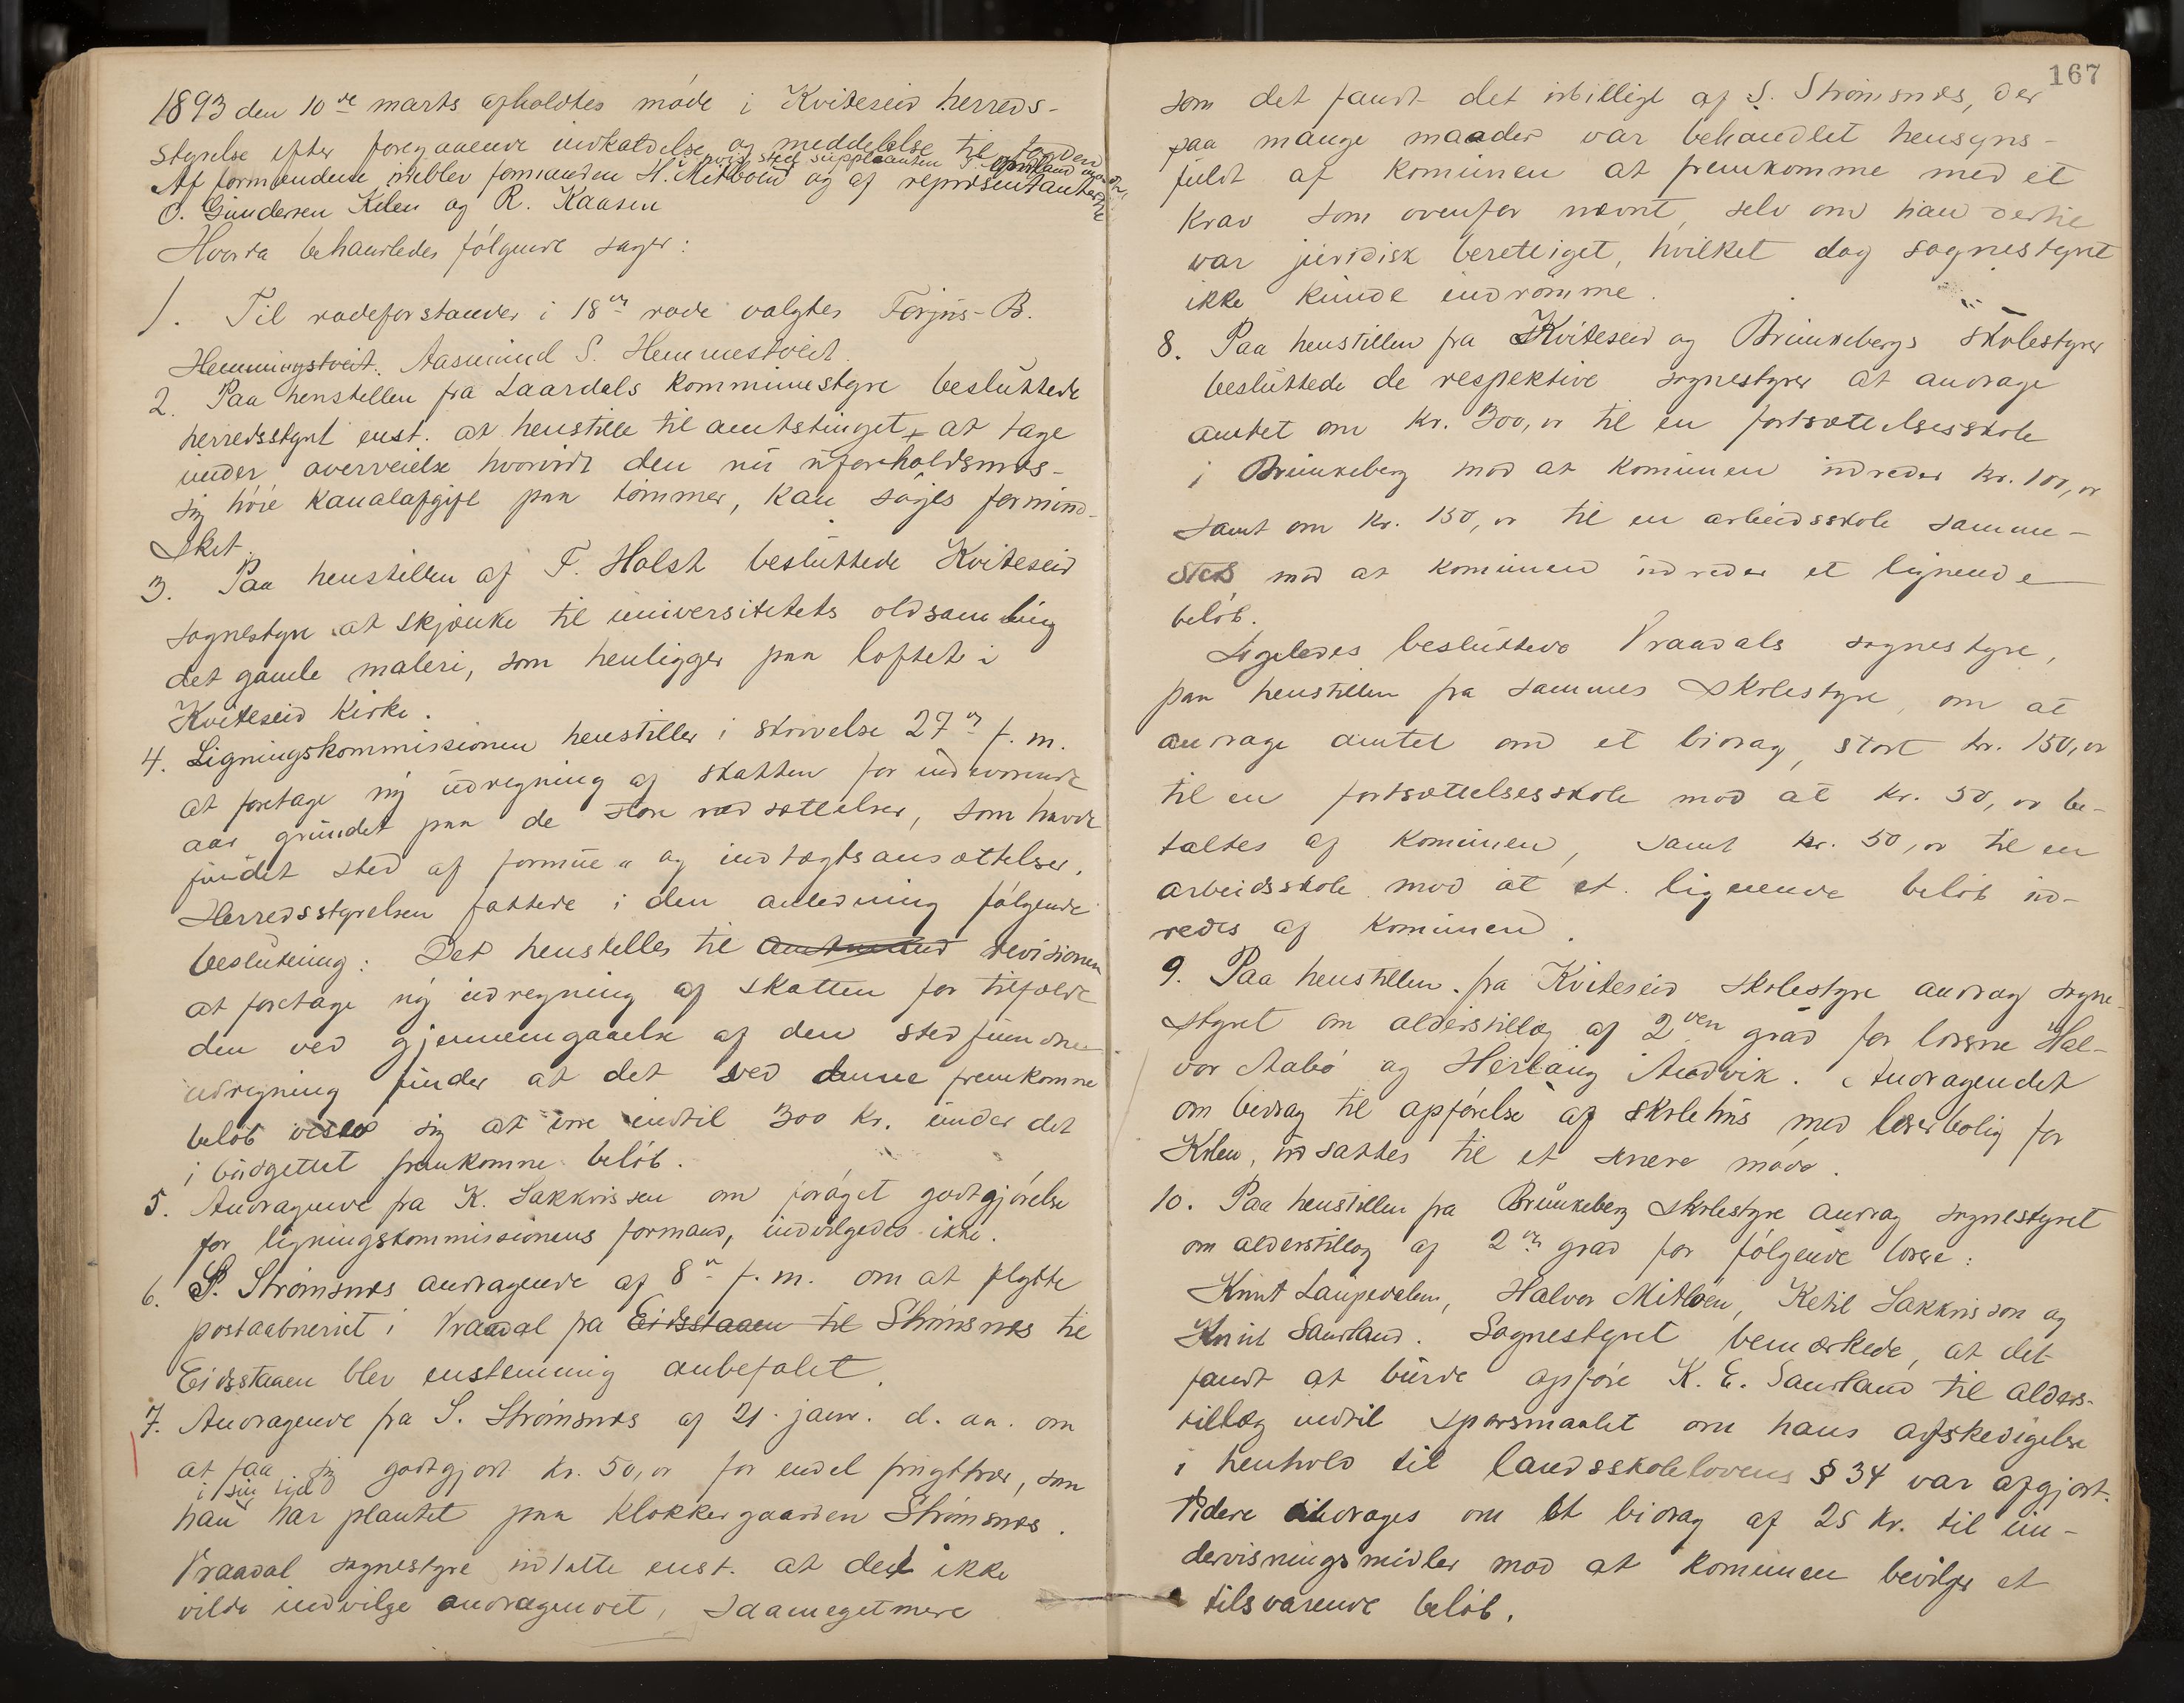 1893 den 10de marts afholdtes møde i Kviteseid herreds-
styrelse efter foregaaende indkaldelse og meddelelse til fogden
Af formændene udeblev formanden H. Mithboen i hvis sted suppleanten mødte, og af repræsentanterne
O. Gundersen Kilen og R. Kaasen
Hvorda behandledes følgende sager:
1. Til rodeforstander i 18de rode valgtes Torjus B.
Hemmingstveit. Aasmund S. Hemmestveit.
2. Paa henstillen fra Laardals kommunestyre besluttede
herredsstyret enst. at henstille til amtstinget, at tage
under overveielse hvorvidt den nu uforholdsmæs-
sig høie kanalafgift paa tømmer, kan søges formind-
sket.
3. Paa henstillen af T. Holst besluttede Kviteseid
sognestyre at skjænke til universitetets oldsamling
det gamle maleri, som henligger paa loftet i
Kviteseid Kirke.
4. Ligningskommissionen henstiller i skrivelse 27de f. m.
at foretage ny udregning af skatten for indeværende
aar grundet paa de store nedsættelser, som havde
fundet sted af formue- og indtægtsansættelser.
Herredsstyrelsen fattede i den anledning følgende
beslutning: Det henstilles til amtmand revisionen
at foretage ny udregning af skatten for tilfælde
den ved gjennemgaaelse af den stedfundne
udregning finder at det ved denne fremkomne
beløb viser sig at være indtil 300 kr. under det
i budgettet fremkomne beløb.
5. Andragende fra K. Sakkrissen om forøget godtgjørelse
for ligningskommissionens formand, indvilgedes ikke.
6. S. Strømsnes andragende af 8de f. m. om at flytte
postaabneriet i Vraadal fra Eidsstaaen til Strømsnes til
Eidsstaaen blev enstemmig anbefalet.
7. Andragende fra S. Strømsnes af 21. janr. d. aa. om
at faa sig godtgjort kr. 50,00 for endel frugttrær, som
han i sin tid har plantet paa Klokkergaarden Strømsnes.
Vraadal sognestyre vedtatte enst. at det ikke
vilde indvilge andragendet, saameget mere
167
som det fandt det ubilligt af S. Strømsnes, der
paa mange maader var behandlet hensyns-
fuldt af komunen at fremkomme med et
krav som ovenfor nævnt, selv om han dertil
var juridisk berettiget, hvilket dog sognestyret
ikke kunde indrømme.
8. Paa henstillen fra Kviteseid og Brunkebergs skolestyrer
besluttede de respektive sognestyrer at andrage
amtet om kr. 300,00 til en fortsættelsesskole
i Brunkeberg mod at komunen udreder kr. 100,00
samt om kr. 150,00 til en arbeidsskole samme-
steds mod at komunen udreder et lignende
beløb.
Ligeledes besluttede Vraadals sognestyre,
paa henstillen fra sammes skolestyre, om at
andrage amtet om et bidrag, stort kr. 150,00
til en fortsættelsesskole mod at kr. 50,00 be-
taltes af komunen, samt kr. 50,00 til en
arbeidsskole mod at et lignende beløb ud-
redes af komunen.
9. Paa henstillen fra Kviteseid skolestyre androg sogne-
styret om alderstillæg af 2den grad for lærerne Hal-
vor Aabø og Herlaug Andvik. Andragendet
om bidrag til opførelse af skolehus med lærerbolig for
Kilen, udsattes til et senere møde.
10. Paa henstillen fra Brunkeberg skolestyre androg sognestyret
om alderstillæg af 2den grad for følgende lærere:
Knut Laupedalen, Halvor Mitbøen, Ketil Sakkrisson og
Knut Saurland. Sognestyret bemærkede, at det
fandt at burde opføre K. E. Saurland til alders-
tillæg indtil spørsmaalet om hans afskedigelse
i henhold til landsskolelovens § 34 var afgjort.
Videre androges om et bidrag af 25 kr. til un-
dervisningsmidler mod at komunen bevilger et
tilsvarende beløb.